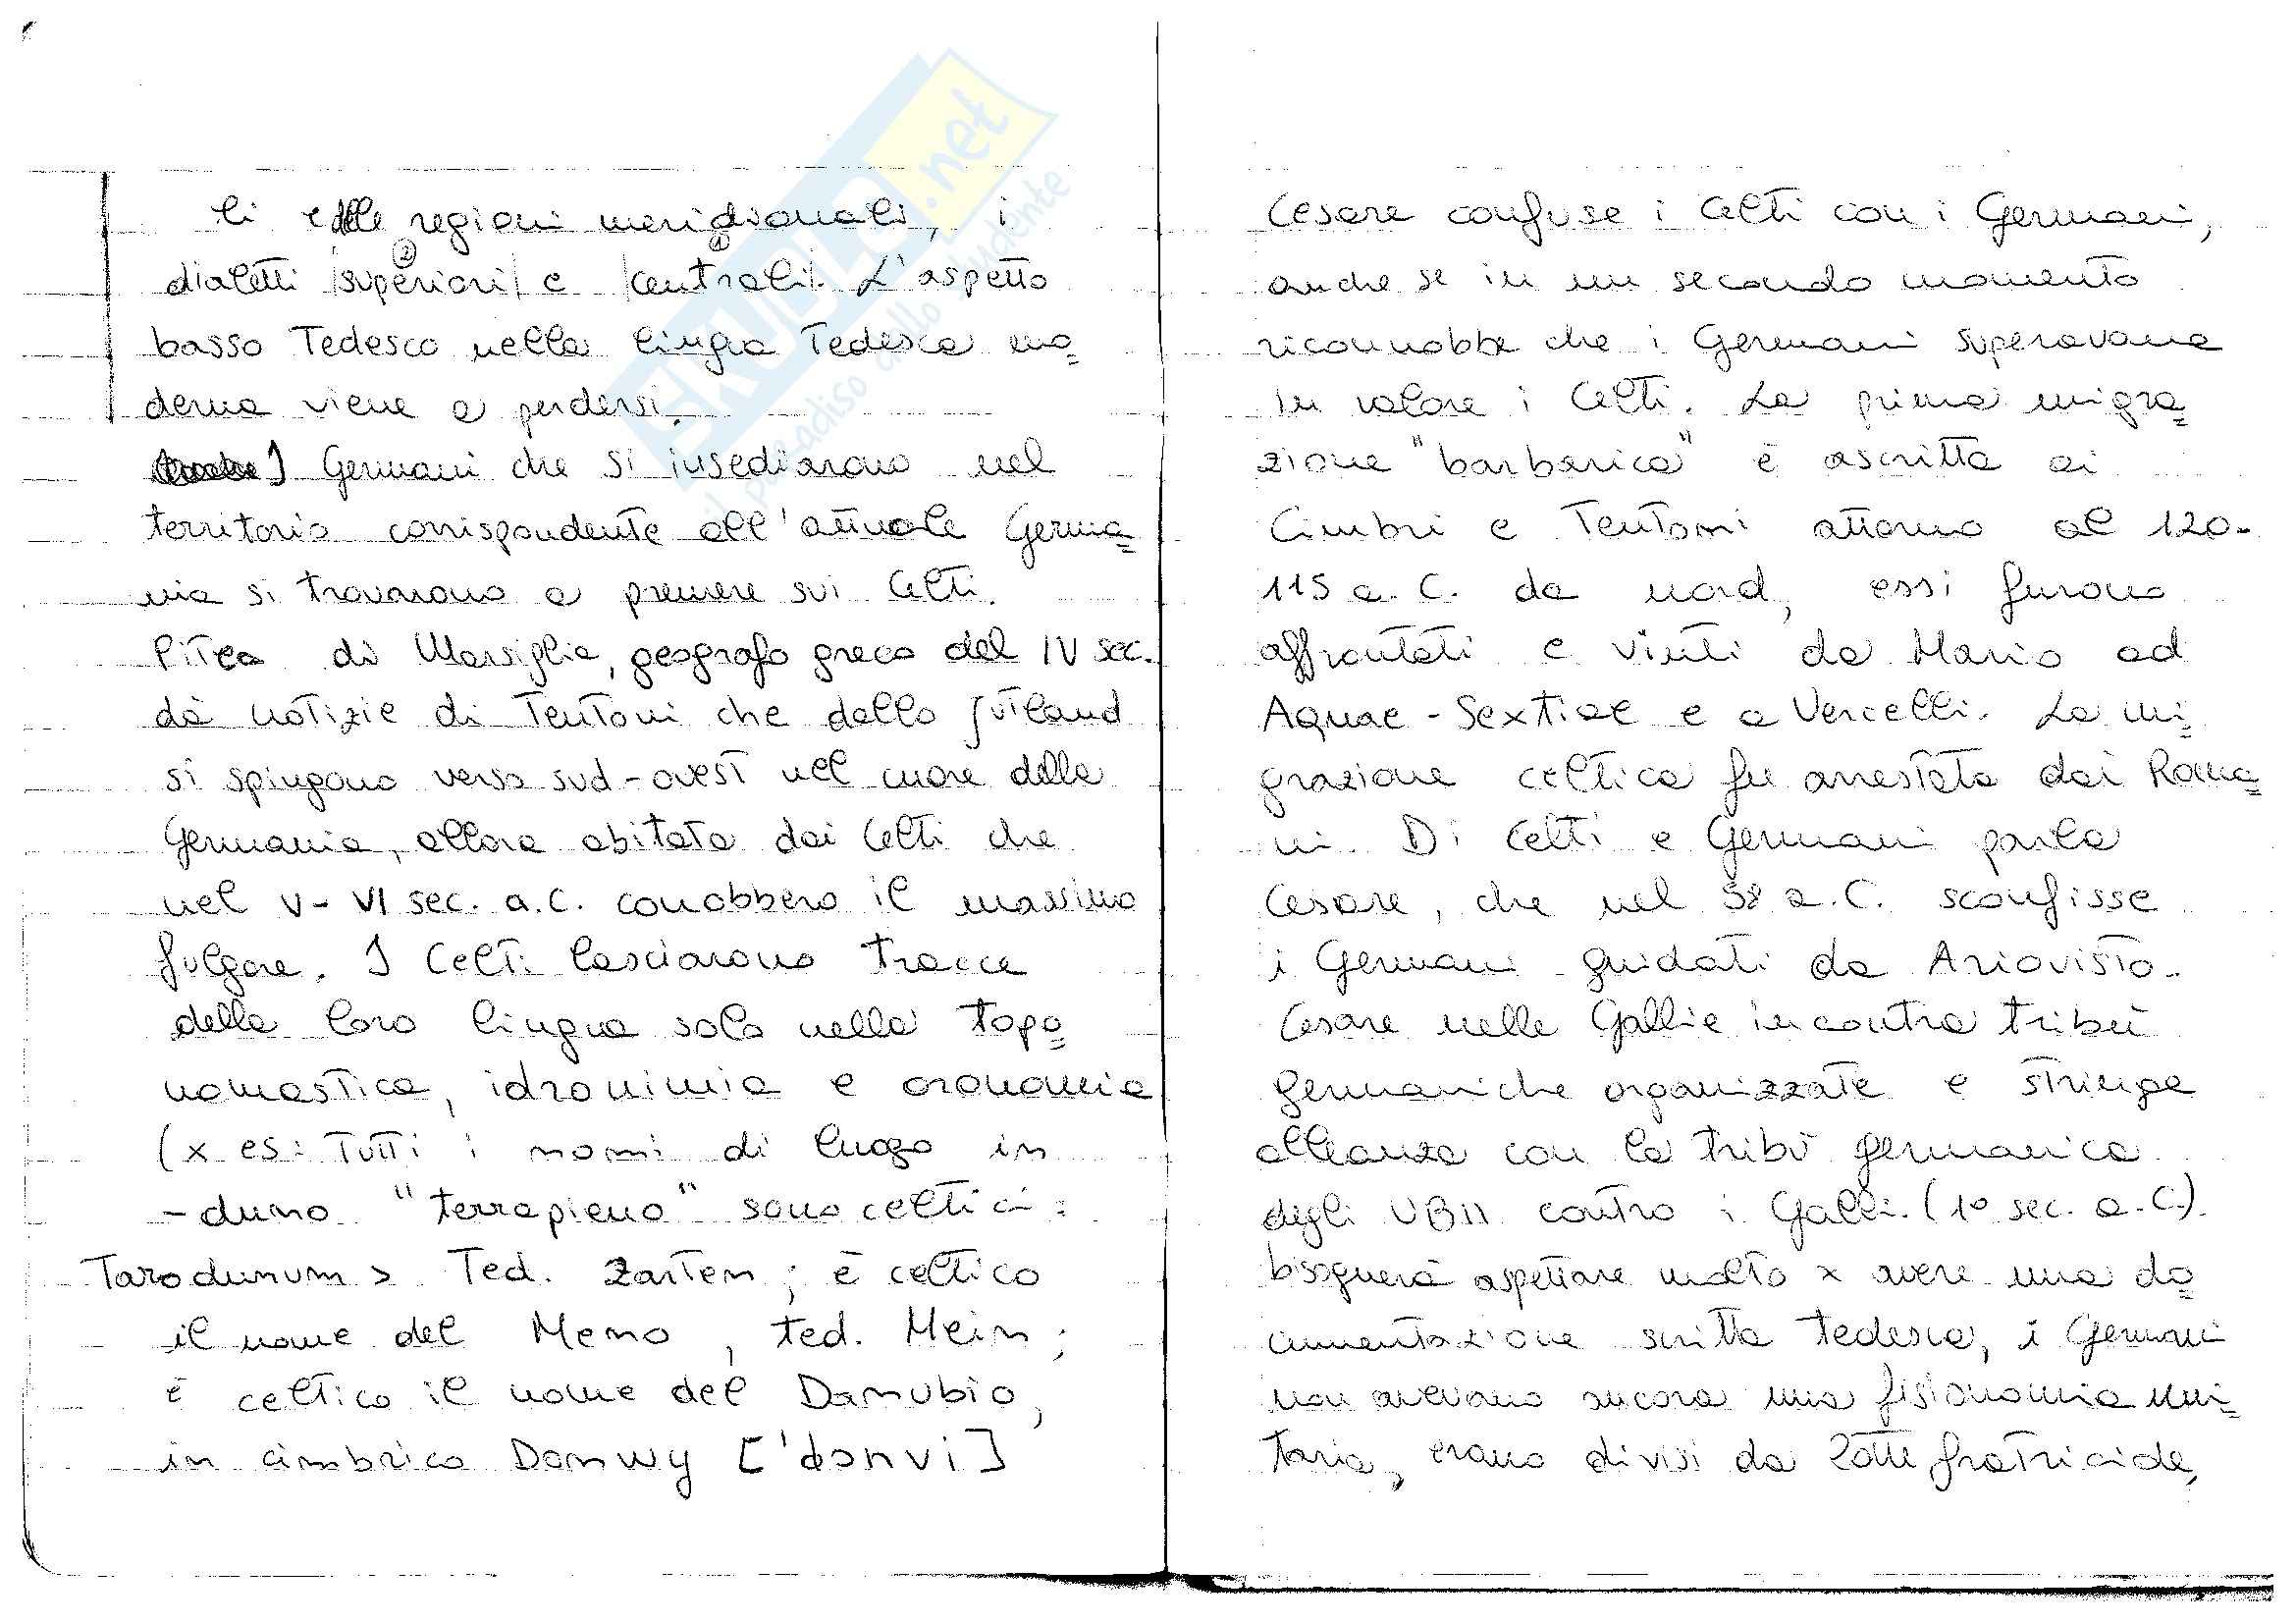 li e delle regioni meridionali, i
② ①
dialetti |superiori| e |centrali|. L'aspetto
basso Tedesco nella lingua Tedesca mo=
derna viene a perdersi.
I Germani che si insediarono nel
territorio corrispondente all'attuale Germa=
nia si trovarono a premere sui Celti.
Pitea di Marsiglia, geografo greco del IV sec.
dà notizie di Teutoni che dallo Jutland
si spingono verso sud-ovest nel cuore della
Germania, allora abitata dai Celti che
nel V-VI sec. a.C. conobbero il massimo
fulgore. I Celti lasciarono tracce
della loro lingua solo nella topo=
nomastica, idronimia e oronomia
(x es: Tutti i nomi di luogo in
-duno "terrapieno" sono celtici:
Tarodunum > Ted. Zarten; è celtico
il nome del Meno, ted. Mein;
è celtico il nome del Danubio,
in cimbrico Donwy ['donvi]
Cesare confuse i Celti con i Germani,
anche se in un secondo momento
riconnobbe che i Germani superavano
in valore i Celti. La prima migra=
zione "barbarica" è ascritta ai
Cimbri e Teutoni attorno al 120-
115 a.C. da nord, essi furono
affrontati e vinti da Mario ad
Aquae-Sextiae e a Vercelli. La mi=
grazione celtica fu arrestata dai Roma=
ni. Di Celti e Germani parla
Cesare, che nel 58 a.C. sconfisse
i Germani guidati da Ariovisto.
Cesare nelle Gallie incontra tribù
germaniche organizzate e stringe
alleanza con la tribù germanica
degli UBII contro i Galli. (1° sec. a.C).
bisognerà aspettare molto x avere una do=
cumentazione scritta tedesca, i Germani
non avevano ancora una fisionomia uni=
taria, erano divisi da lotte fratricide,
SKUOLA.net
il paradiso dello studente